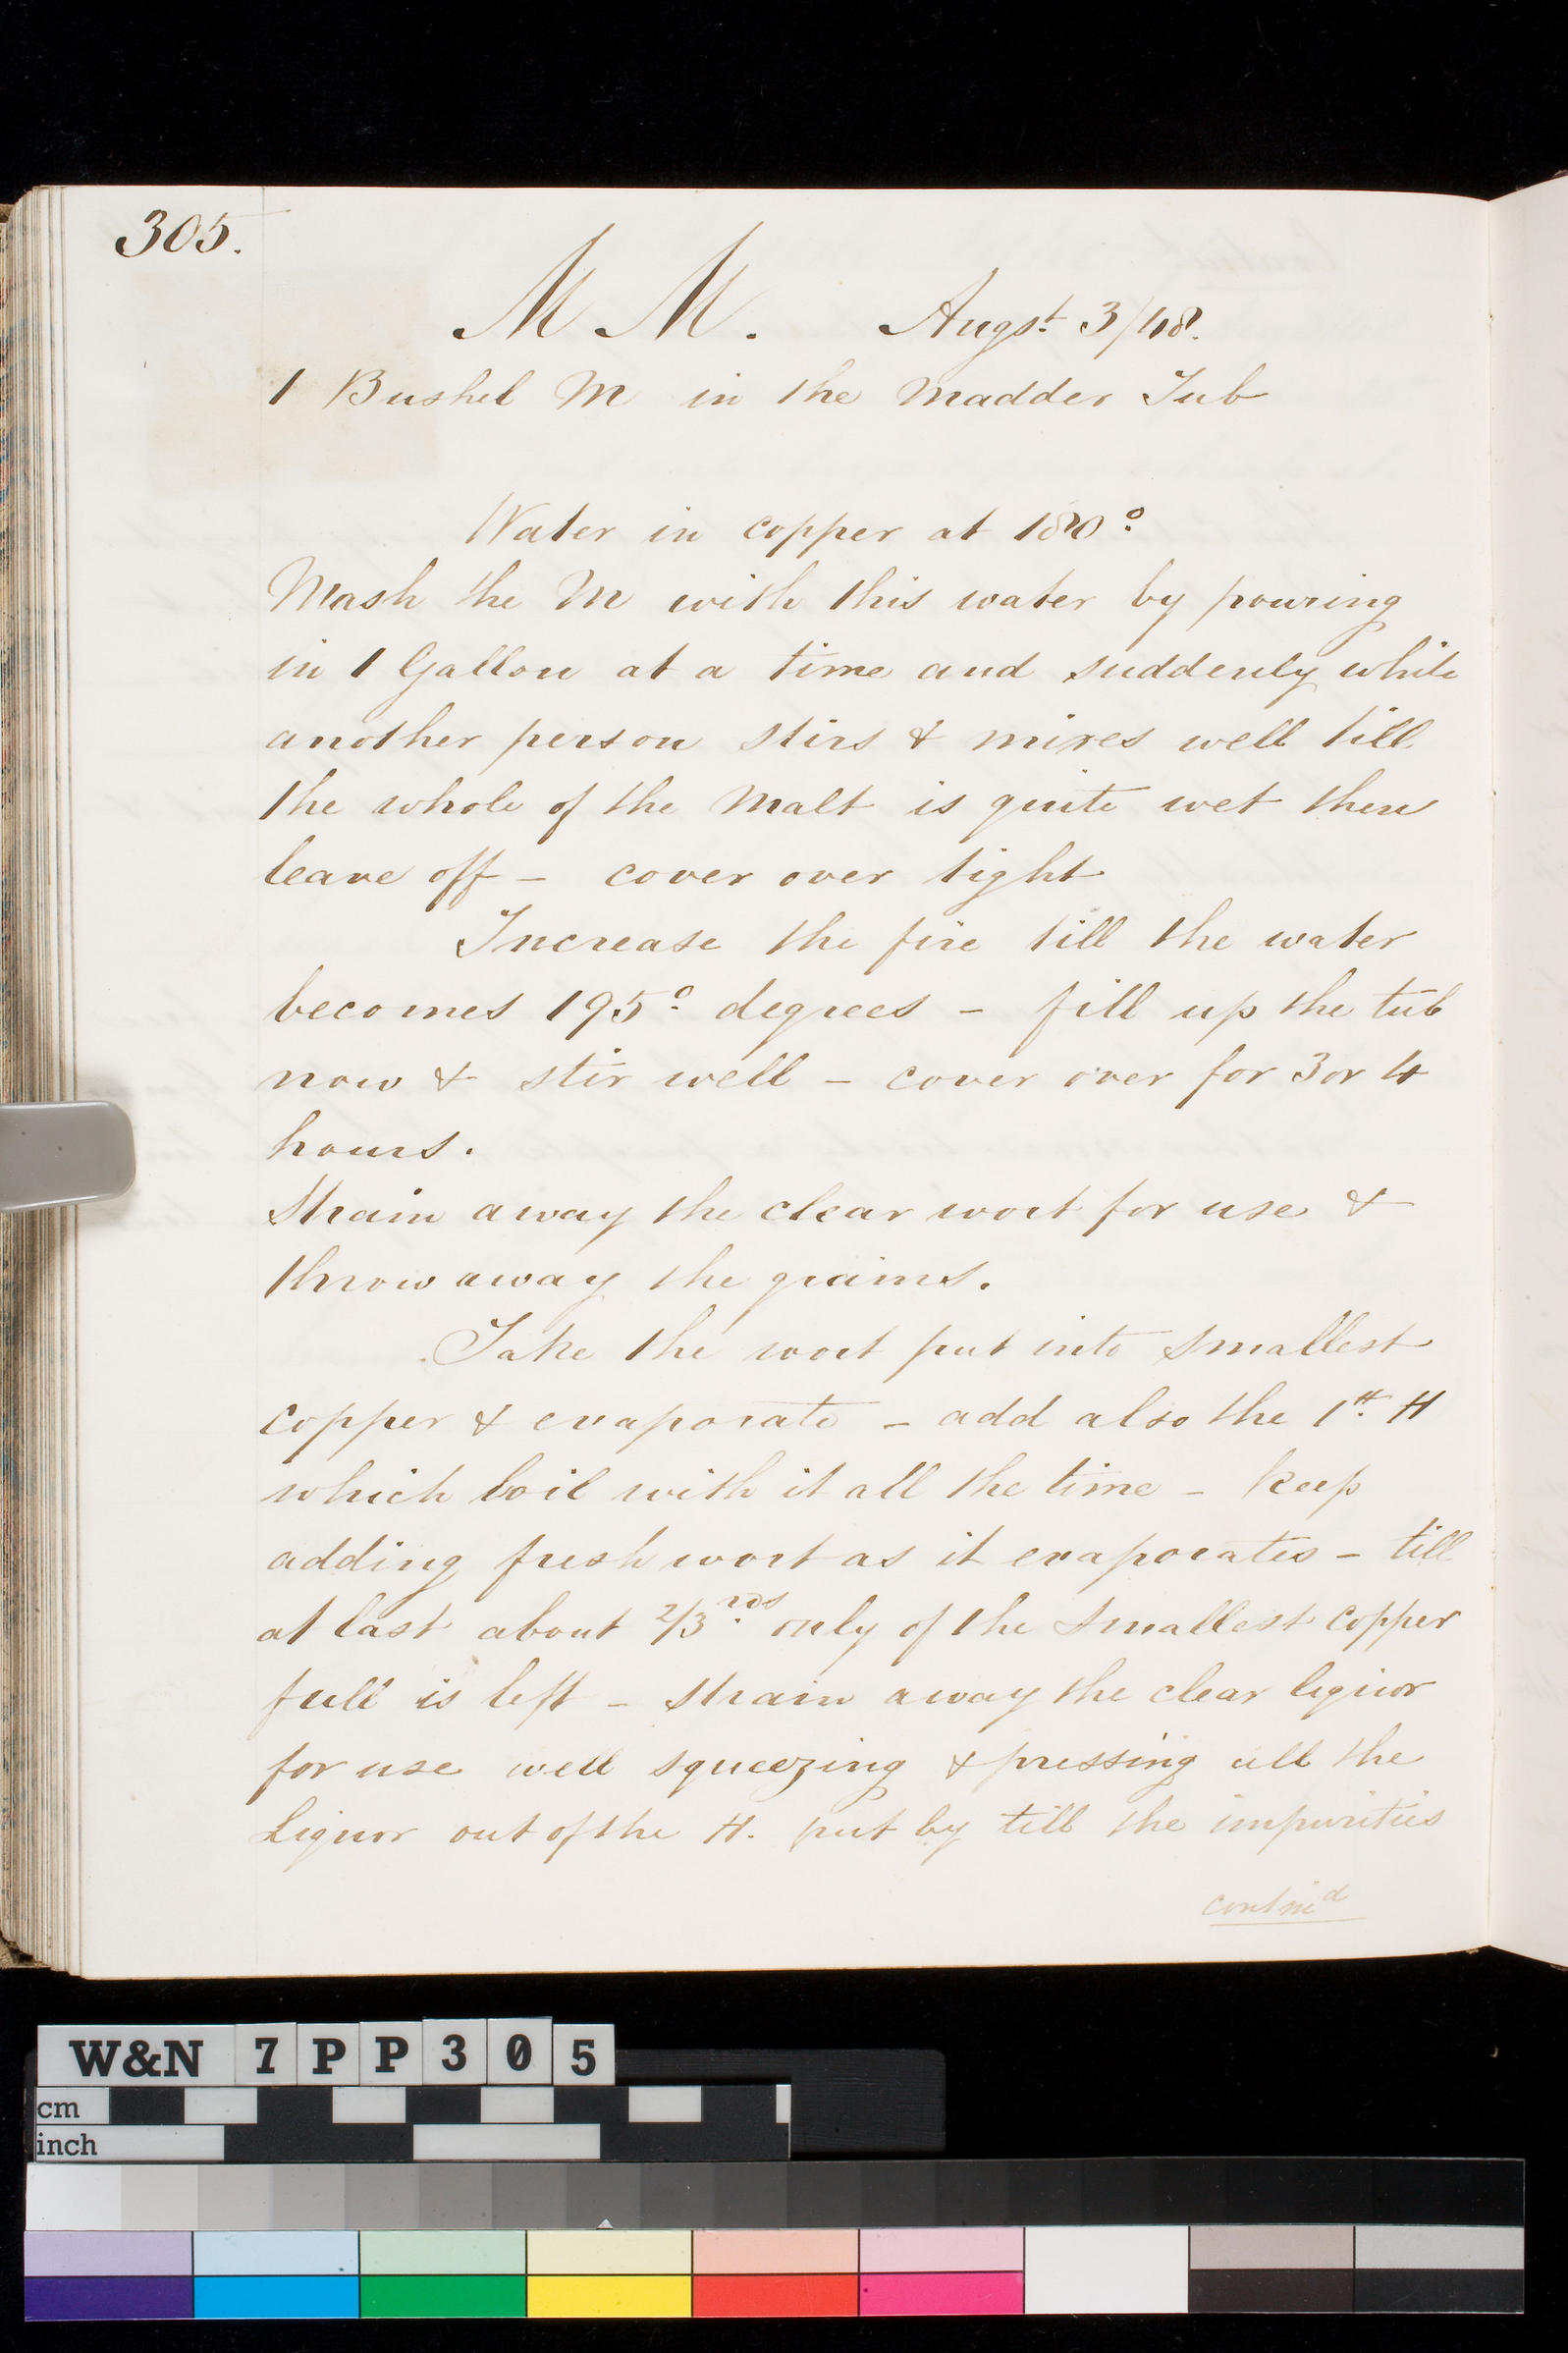 305.
M M. Augst. 3/48.
1 Bushel M in the Madder Tub
Water in copper at 180°
Mash the M with this water by pouring
in 1 Gallon at a time and suddenly while
another person stirs & mixes well till
the whole of the Malt is quite wet then
leave off – cover over tight
Increase the fire till the water
becomes 195° degrees – fill up the tub
now & stir well – cover over for 3 or 4
hours.
Strain away the clear wort for use &
throw away the grains.
Take the wort put into smallest
copper & evaporate – add also the 1 tt. H
which boil with it all the time – keep
adding fresh wort as it evaporates – till
at last about 2/3rds only of the smallest copper
full is left – strain away the clear liquor
for use well squeezing & pressing all the
Liquor out of the H. put by till the impurities
contind
W&N 7PP305
cm
inch